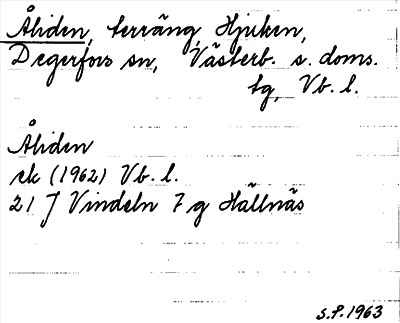 Åliden, terräng, Hjuken,
Degerfors sn, Västerb. s. doms.
tg, Vb. l.
Åliden
ek (1962) Vb. l.
21 J Vindeln 7 g Hällnäs
S.P. 1963